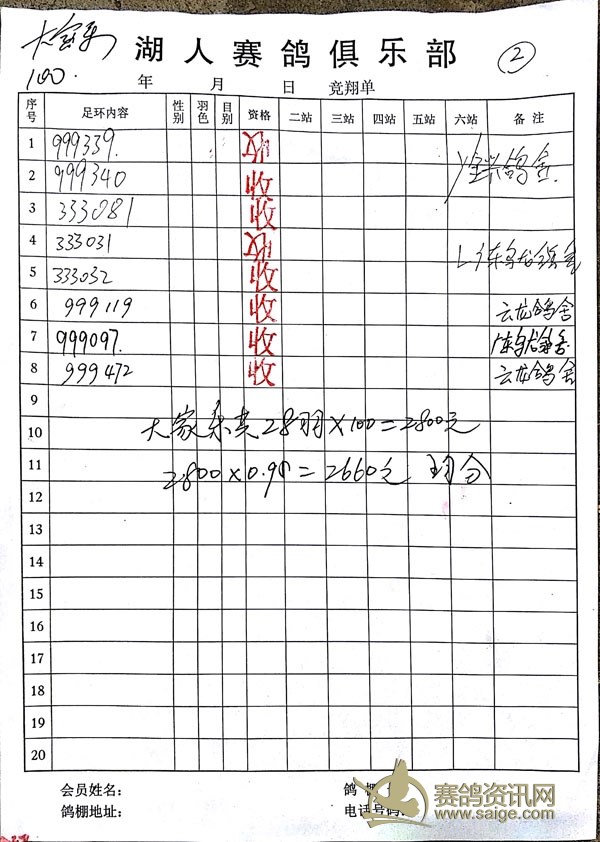 大家乐
100.
湖人赛鸽俱乐部
②
年 月 日 竞翔单
序号 足环内容 性别 羽色 目别 资格 二站 三站 四站 五站 六站 备注
1 999339. 收
2 999340 收 鸽舍
3 333081 收
4 333031 收
5 333032 收
6 999119 收 云龙鸽舍
7 999097. 收
8 999472 收 云龙鸽舍
9
10 大家乐共28羽×100=2800元
11 2800×0.95=2660元 均分
12
13
14
15
16
17
18
19
20
会员姓名: 鸽棚
鸽棚地址: 电话号码:
赛鸽资讯网
www.saige.com